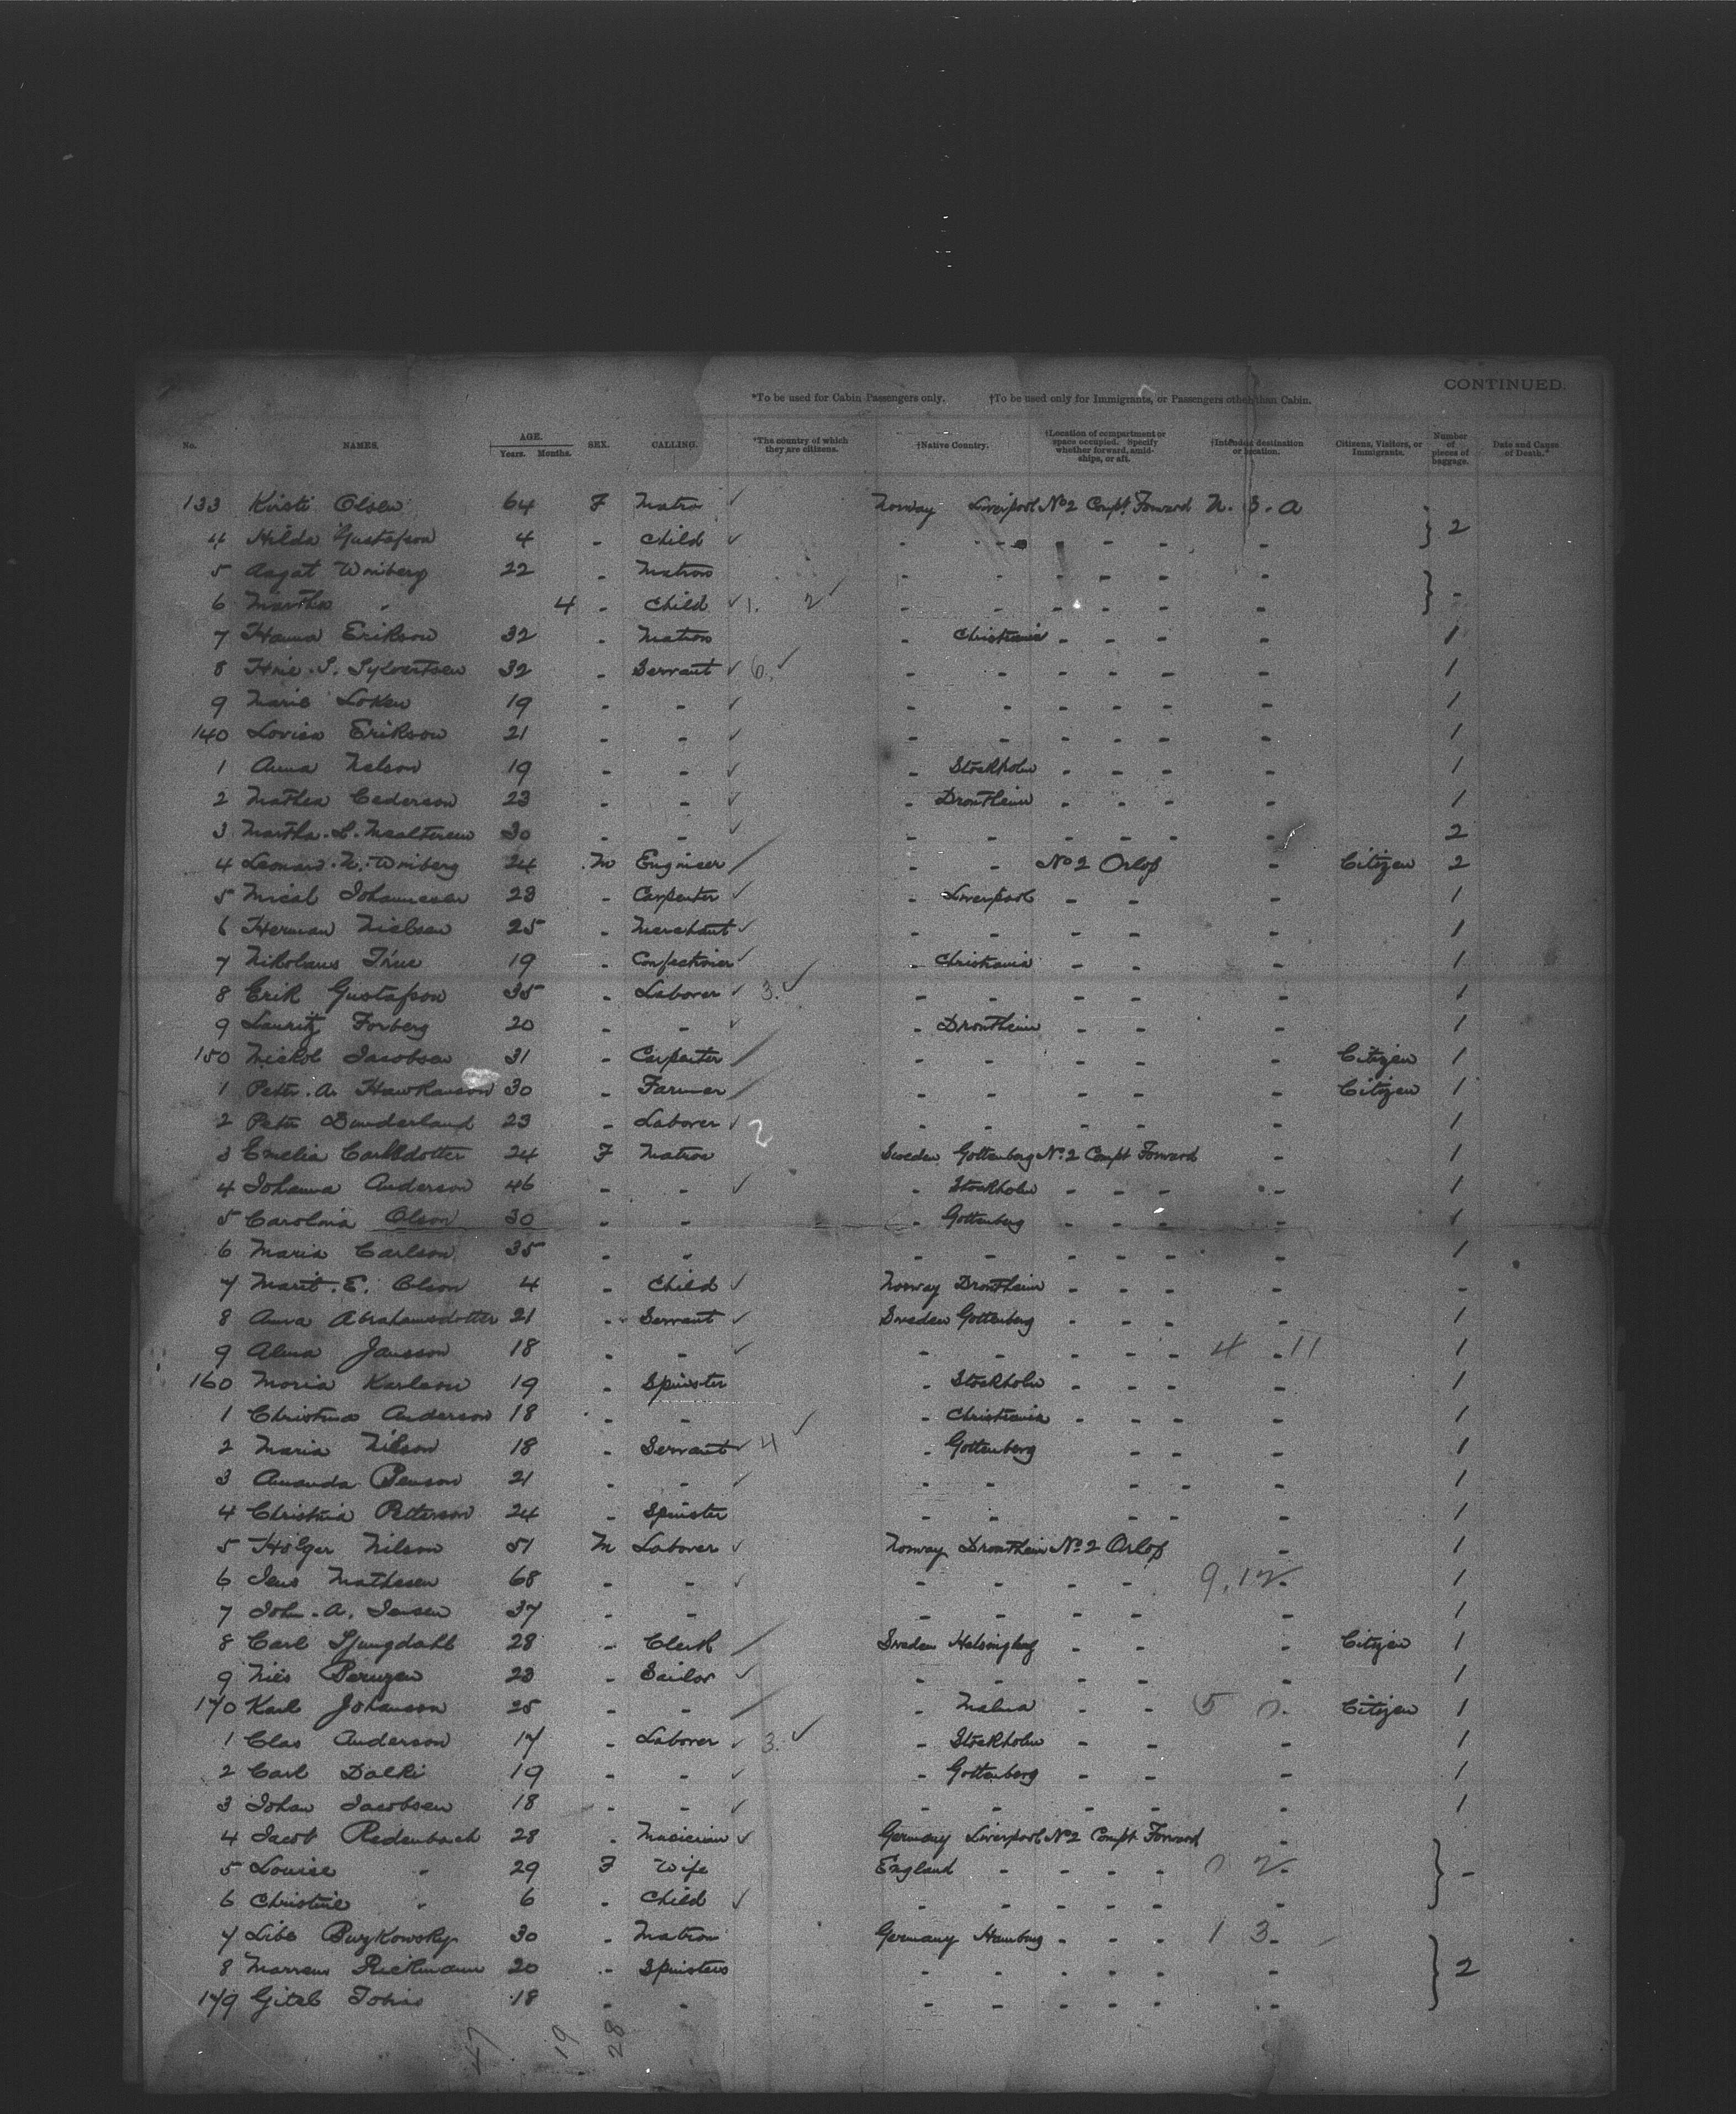 CONTINUED.
*To be used for Cabin Passengers only. †To be used only for Immigrants, or Passengers other than Cabin.
No. NAMES. AGE. Years. Months. SEX. CALLING. *The country of which they are citizens. †Native Country. †Location of compartment or space occupied. Specify whether forward, amidships, or aft. †Intended destination or location. Citizens, Visitors, or Immigrants. Number of pieces of baggage. Date and Cause of Death.*
133 Kirsti Olsen 64 F Matron ✓ Norway Liverpool No 2 Compt. Forward U. S. A
4 Hilda Gustafson 4 - Child ✓ - - - - - - } 2
5 Aagat Winberg 22 - Matron - - - - - -
6 Martha " 4 - Child ✓ 1. 2 ✓ - - - - - - } -
7 Hanna Erikson 32 - Matron - Christiania - - - - 1
8 S. Syvertsen 32 - Servant ✓ 6. ✓ - - - - - - 1
9 Marie Loken 19 - - ✓ - - - - - - 1
140 Lovisa Erikson 21 - - ✓ - - - - - - 1
1 Anna Nelson 19 - - ✓ - Stockholm - - - - 1
2 Mathea Cederson 23 - - ✓ - Drontheim - - - - 1
3 Martha. L. 30 - - ✓ - - - - - - 2
4 Leonard. N. Winberg 24 M Engineer / - - No 2 Orlop - Citizen 2
5 Johannesen 23 - Carpenter ✓ - Liverpool - - - 1
6 Herman Nielsen 25 - Merchant ✓ - - - - - 1
7 Nikolaus 19 - Confectioner ✓ - Christiania - - - 1
8 Erik Gustafson 35 - Laborer ✓ 3. ✓ - - - - - 1
9 Lauritz Forberg 20 - - ✓ - Drontheim - - - 1
150 Jacobsen 31 - Carpenter / - - - - - Citizen 1
1 Peter. A. Hawkanson 30 - Farmer / - - - - - Citizen 1
2 Peter Dunderland 23 - Laborer ✓ 2 - - - - - 1
3 Emelia Carlsdotter 24 F Matron Sweden Gottenberg No. 2 Compt Forward - 1
4 Johanna Anderson 46 - - ✓ - Stockholm - - - - 1
5 Carolina Olson 30 - - - Gottenberg - - - - 1
6 Maria Carlson 35 - - - - - - - - 1
7 Marit. E. Olson 4 - Child ✓ Norway Drontheim - - - - -
8 Anna Abrahamsdotter 21 - Servant ✓ Sweden Gottenberg - - - - 1
9 Alma Jansson 18 - - ✓ - - - - - 4 - 11 1
160 Maria Karlson 19 - Spinster - Stockholm - - - - 1
1 Christina Anderson 18 - - - Christiania - - - - 1
2 Maria Nilson 18 - Servant ✓ 4 ✓ - Gottenberg - - - 1
3 Amanda Benson 21 - - ✓ - - - - - 1
4 Christina Petterson 24 - Spinster - - - - - 1
5 Holger Nilson 51 M Laborer ✓ Norway Drontheim No. 2 Orlop - 1
6 Jens Mathesen 68 - - ✓ - - - - 9. 12 - 1
7 John. A. Jensen 37 - - - - - - - 1
8 Carl Ljungdahl 28 - Clerk / Sweden Helsingborg - - - Citizen 1
9 Nils 23 - Sailor ✓ - - - - - 1
170 Karl Johanson 25 - - / - Malmo - - 5 Citizen 1
1 Clas Anderson 17 - Laborer ✓ 3. ✓ - Stockholm - - - 1
2 Carl Dalki 19 - - ✓ - Gottenberg - - - 1
3 Johan Jacobsen 18 - - ✓ - - - - - 1
4 Jacob Redenbach 28 - Musician ✓ Germany Liverpool No 2 Compt Forward -
5 Louise " 29 F Wife England - - - - 2 - } -
6 Christine " 6 - Child ✓ - - - - - -
7 Libe 30 - Matron Germany Hamburg - - - 1 3 -
8 20 - Spinsters - - - - - - } 2
179 Gitel 18 - - - - - - - -
47 19 28